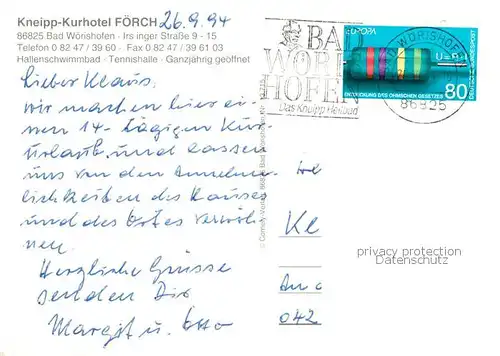 Kneipp-Kurhotel FÖRCH 26.9.94
86825 Bad Wörishofen · Irsinger Straße 9 - 15
Telefon 0 82 47 / 39 60 · Fax 0 82 47 / 39 61 03
Hallenschwimmbad · Tennishalle · Ganzjährig geöffnet
Lieber Klaus,
wir machen hier ei-
nen 14-tägigen Kur-
urlaub und lassen
uns von den Annehm-
lichkeiten des Hauses
und des Ortes verwöh-
nen.
Herzliche Grüsse
senden Dir
Margit u. Otto
BAD
WÖRIS
HOFEN
Das Kneipp Heilbad
EUROPA
WÖRISHOFEN
86825
ENTDECKUNG DES OHMSCHEN GESETZES
80
DEUTSCHE BUNDESPOST
Kl
042
privacy protection
Datenschutz